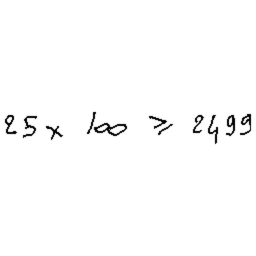 25 x 100 ≥ 2499